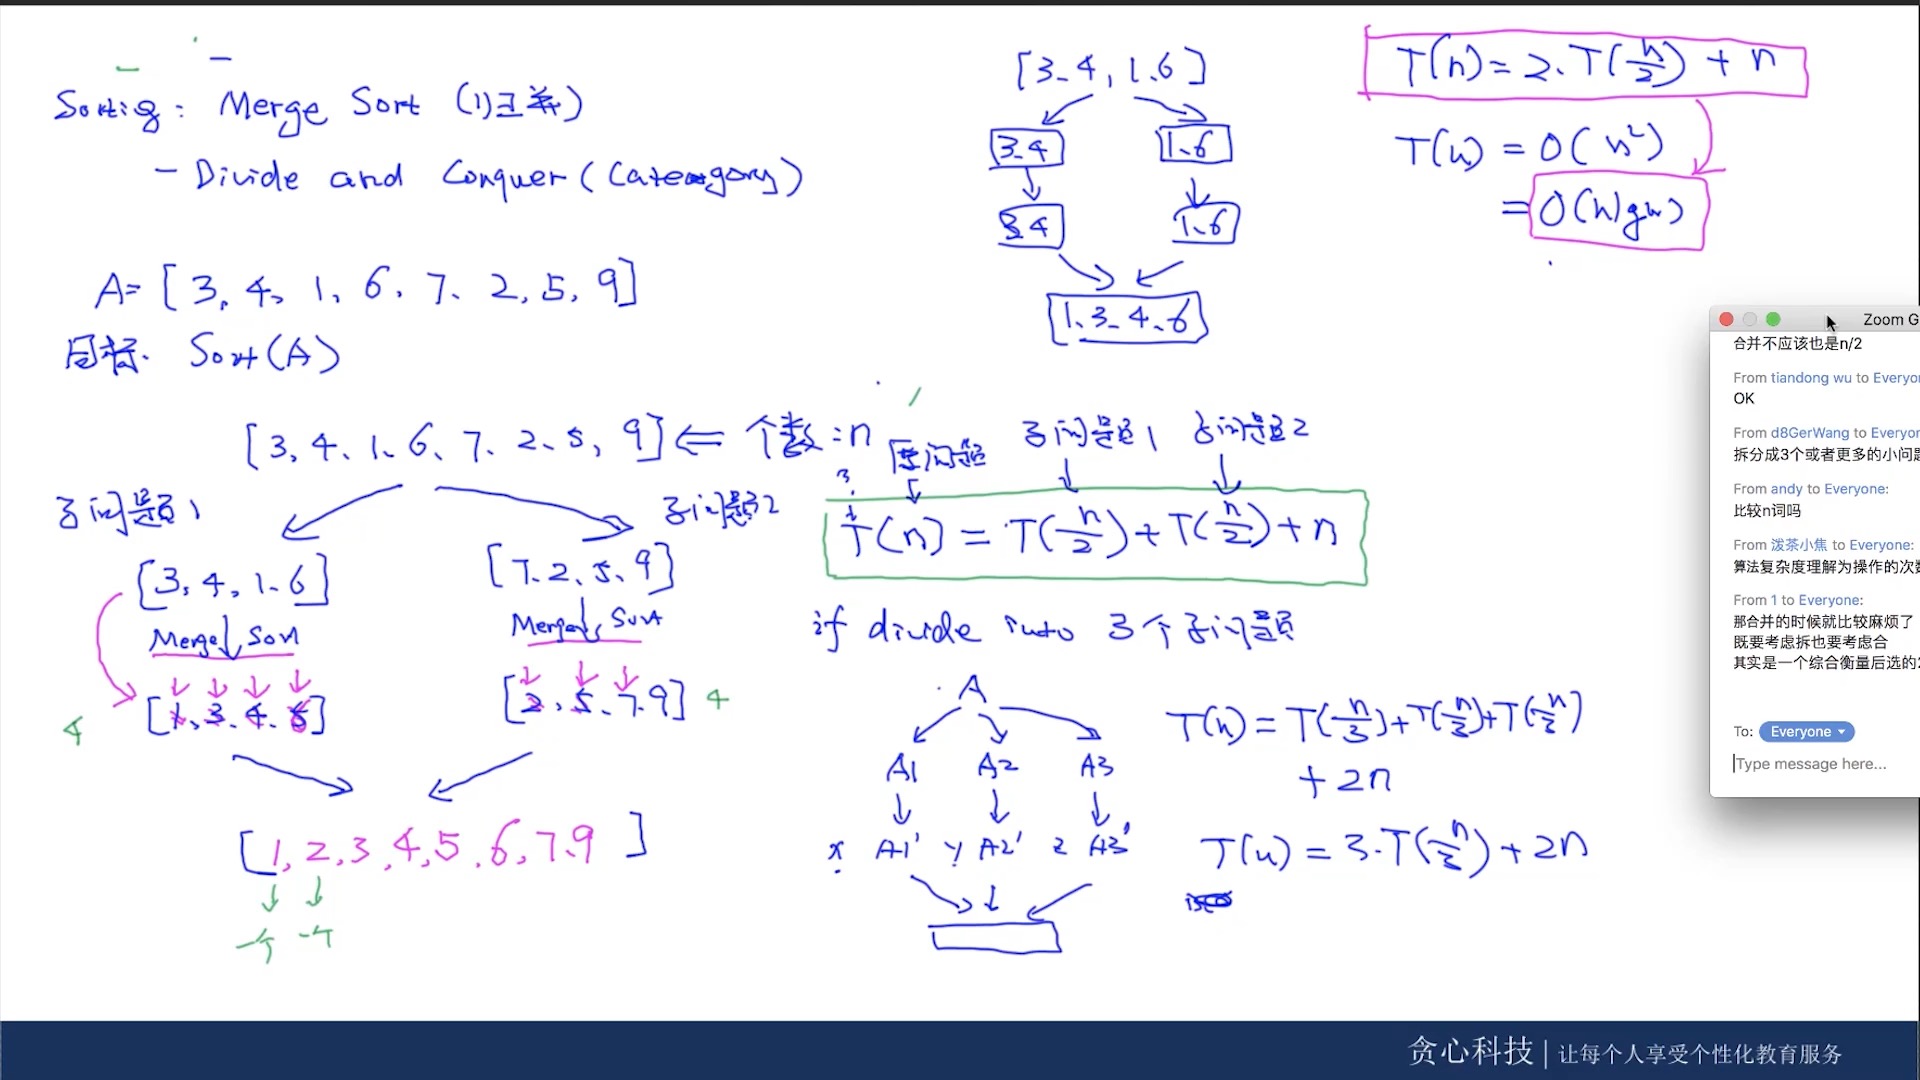 Sorting: Merge Sort (归并)
- Divide and Conquer (Category)
A= [3, 4, 1, 6, 7, 2, 5, 9]
目标. Sort(A)
[3, 4, 1, 6, 7, 2, 5, 9] ⇐ 个数:n
子问题1
子问题2
[3, 4, 1, 6]
[7, 2, 5, 9]
Merge Sort
Merge Sort
[1, 3, 4, 6]
4
[2, 5, 7, 9]
4
[1, 2, 3, 4, 5, 6, 7, 9]
一个 一个
[3, 4, 1, 6]
3, 4
1, 6
3, 4
1, 6
1, 3, 4, 6
T(n) = 2·T(n/2) + n
T(n) = O(n²)
= O(nlgn)
原问题
子问题1
子问题2
T(n) = T(n/2) + T(n/2) + n
if divide into 3个子问题
A
A1 A2 A3
x A1' y A2' z A3'
T(n) = T(n/3) + T(n/3) + T(n/3)
+ 2n
T(n) = 3·T(n/3) + 2n
Zoom G
合并不应该也是n/2
From tiandong wu to Everyo
OK
From d8GerWang to Everyo
拆分成3个或者更多的小问题
From andy to Everyone:
比较n词吗
From 泼茶小焦 to Everyone:
算法复杂度理解为操作的次数
From 1 to Everyone:
那合并的时候就比较麻烦了
既要考虑拆也要考虑合
其实是一个综合衡量后选的2
To: Everyone
Type message here...
贪心科技 | 让每个人享受个性化教育服务